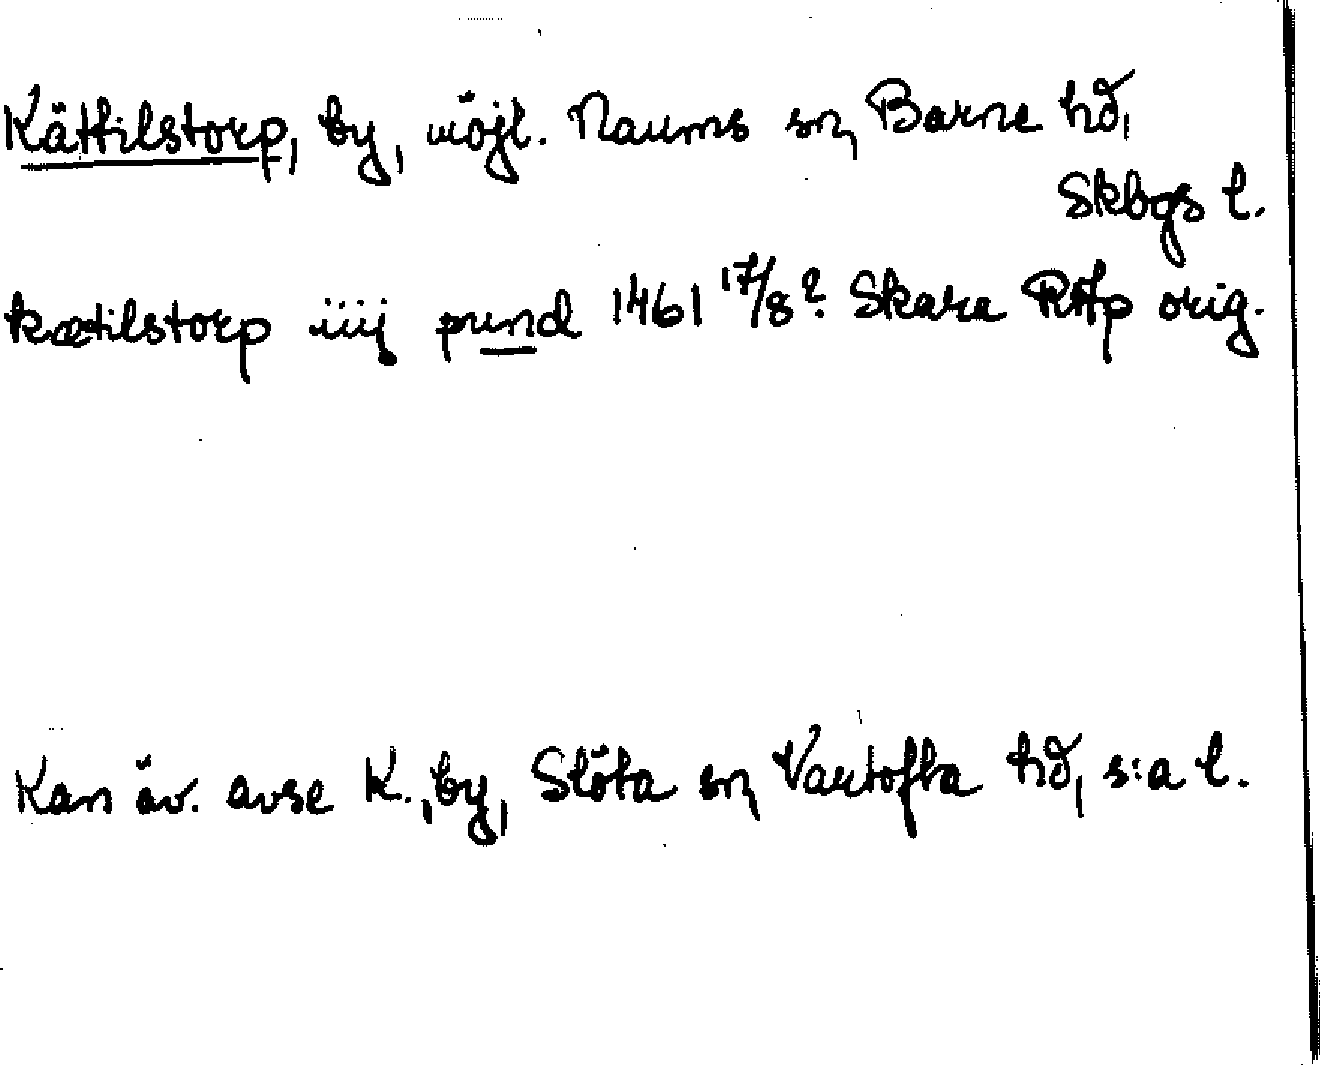 Kättilstorp, by, möjl. Naums sn, Barne hd,
Skbgs l.
kætilstorp iiij pund 1461 17/8? Skara RAp orig.
Kan äv. avse K., by, Slöta sn, Vartofta hd, s:a l.